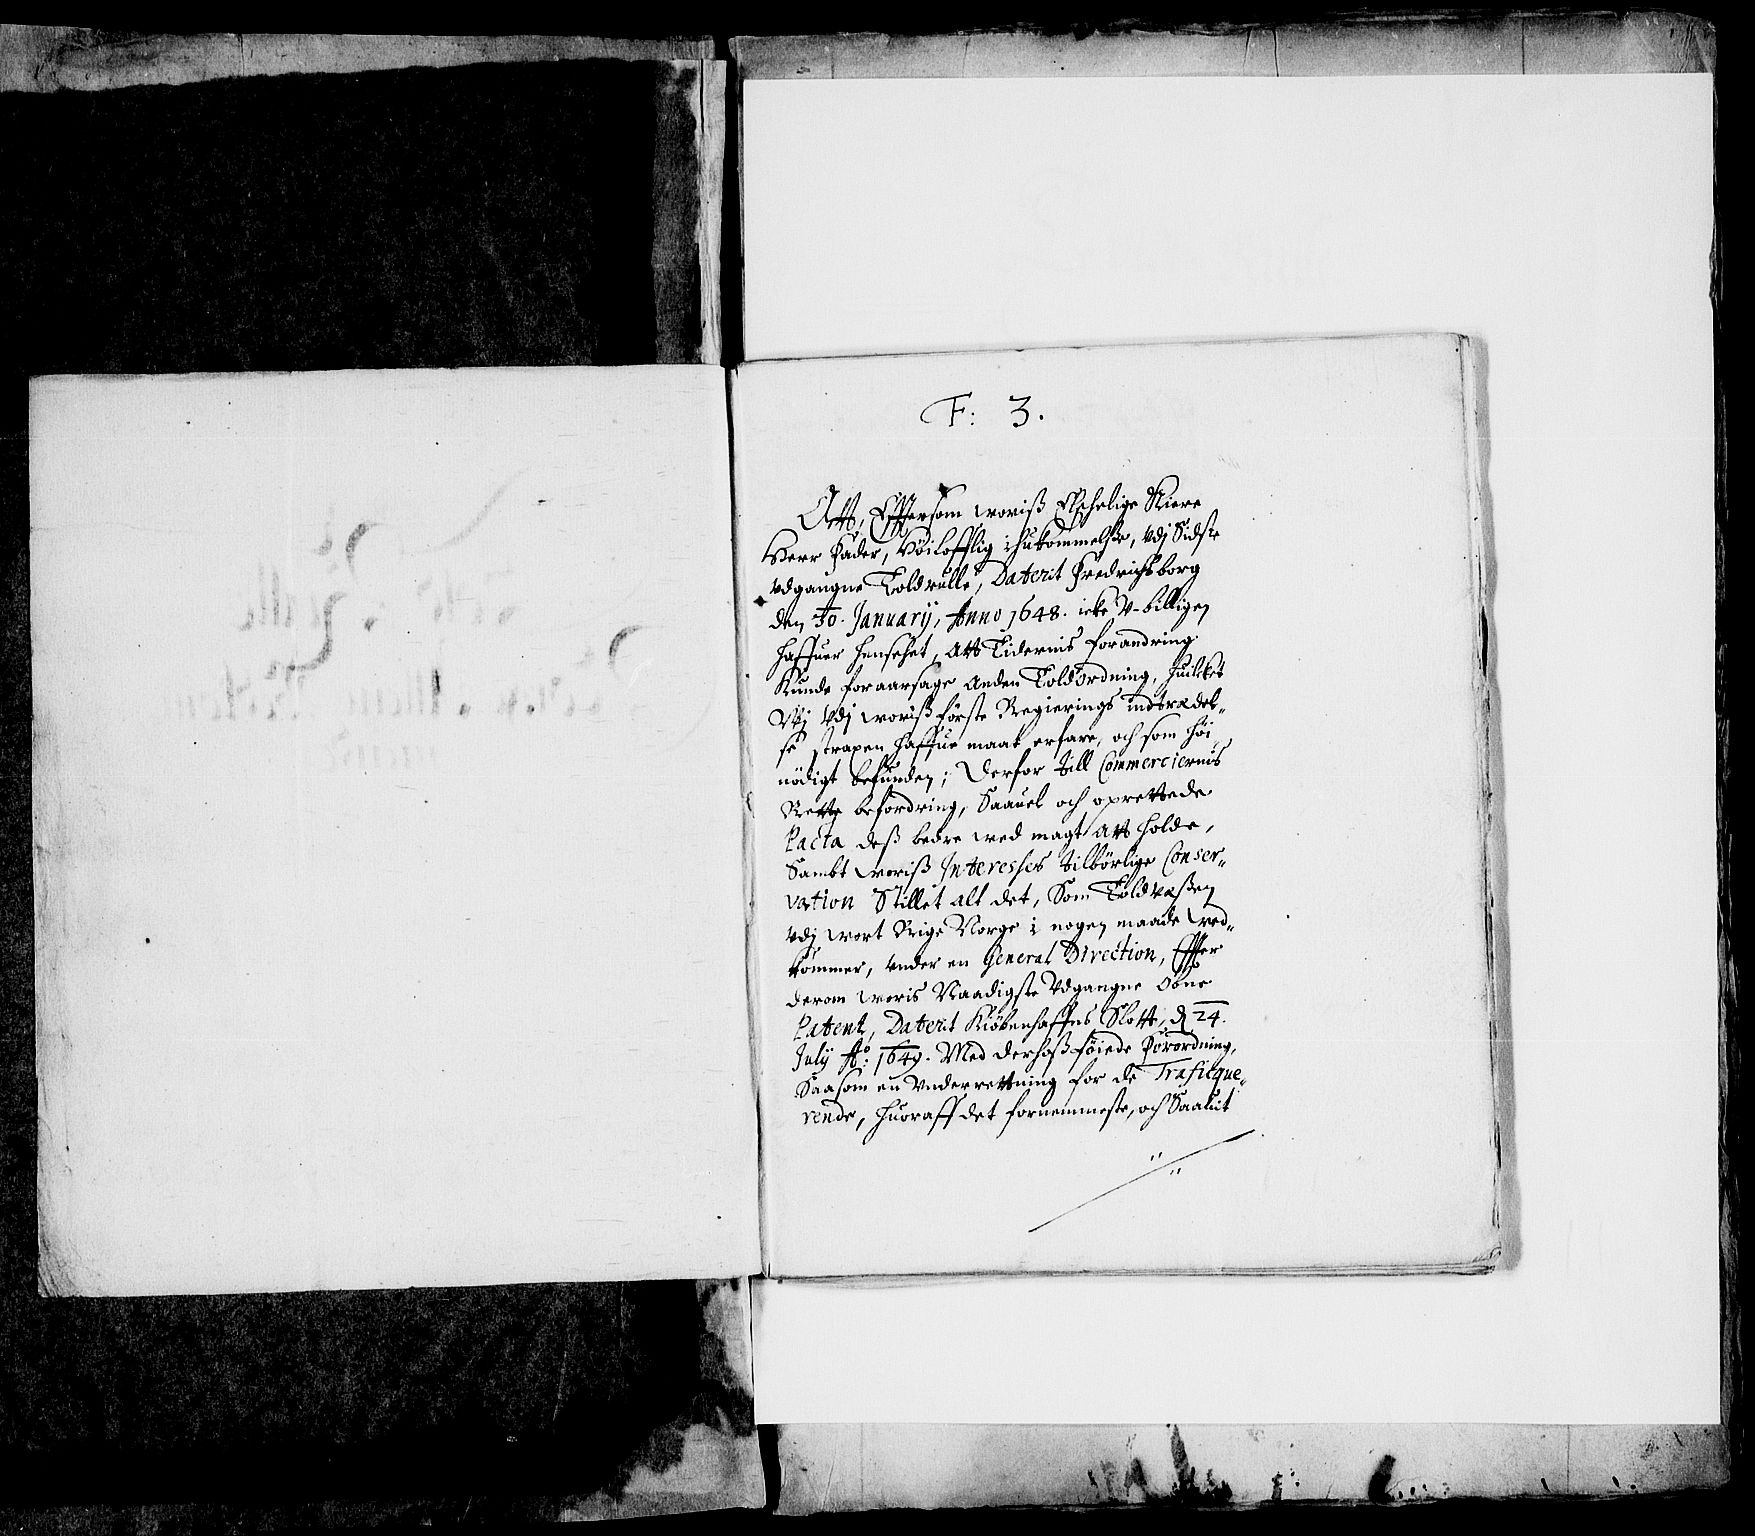 F: 3.
Att, Efftersom woriß Elschelige Kiere
Herr Fader, Höilofflig ihukommelße, vdj Sidste
vdgangne Toldrulle, Daterit Fredrichsborg
den 30. Januarÿ, Anno 1648. icke V-billigen
haffuer henseehet, att Tidernis forandring
Kunde foraarsage anden Toldordning, huilcket
Wj vdj woriß förste Regierings indtrædel-
se strapen haffue maat erfare, och som höi
nödigt befunden; Derfor till Commerciernis
Rette befordring, Saauel och oprettede
Pacta deß bedre wed magt att holde,
Sambt woriß Interesses tilbörlige Conser-
vation Stillet alt det, Som Toldwæßen
vdj wort Rige Norge i nogen maade wed-
kommer, vnder en General Direction, Effter
derom woris Naadigste Vdgangne Obne
Patent, Daterit Kiöbenhaffns Slott, d 24.
Julÿ Ao: 1649. Med derhoß föiede Forordning,
Saasom en Vnderrettning for de Traficque-
rende, huoraff det fornemmeste, och Saauit